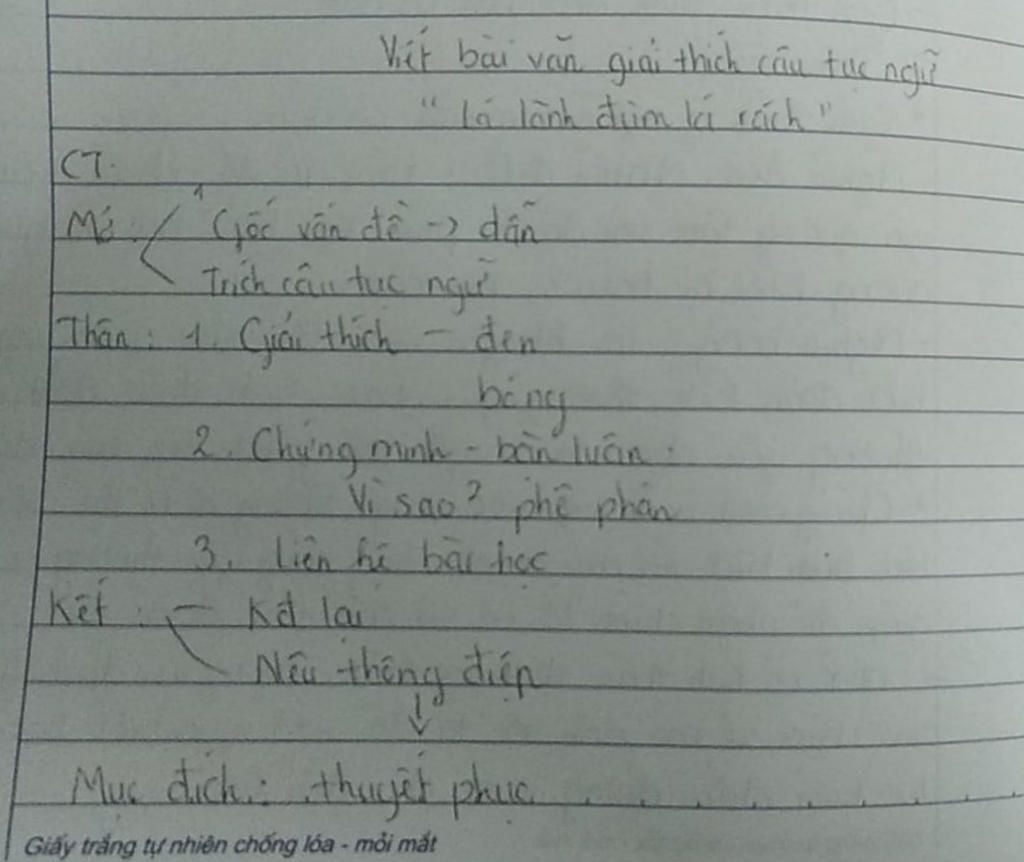 Viết bài văn giải thích câu tục ngữ
"lá lành đùm lá rách"
CT:
Mở: Gốc vấn đề -> dẫn
Trích câu tục ngữ
Thân: 1. Giải thích - đen
bóng
2. Chứng minh - bàn luận:
Vì sao? phê phán
3. Liên hệ bài học
Kết: - Kết lại
Nêu thông điệp
↓
Mục đích: thuyết phục
Giấy trắng tự nhiên chống lóa - mỏi mắt